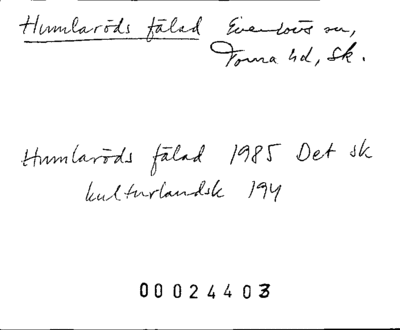 Humlaröds fälad Everlövs sn,
Torna hd, Sk.
Humlaröds fälad 1985 Det sk
kulturlandsk 194
00024403